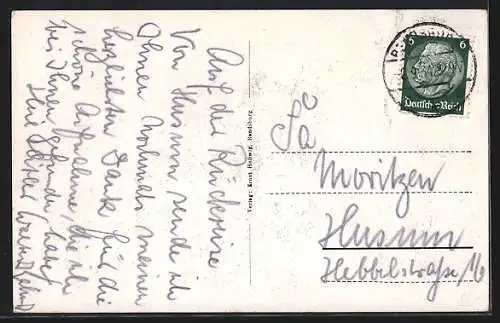 Auf der Rückreise
von Husum sende ich
Ihnen nochmals meinen
herzlichsten Dank für die
schöne Aufnahme, die ich
bei Ihnen gefunden habe.
Verlag: Ernst Hedwig, Rendsburg
6 6
Deutsches Reich
Fa
Moritzen
Husum
Hebbelstraße